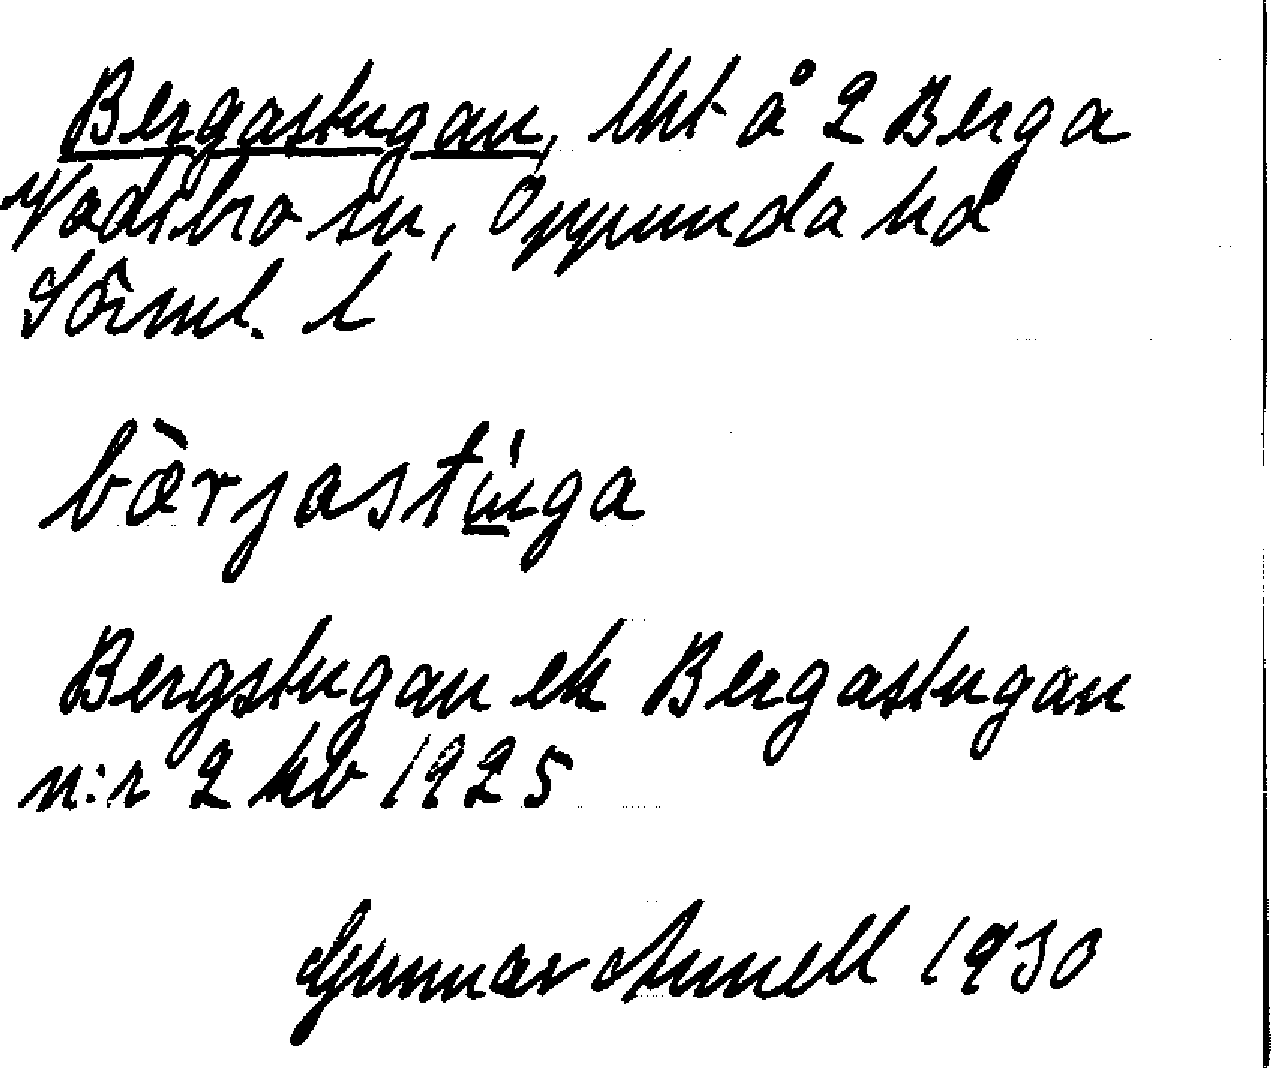 Bergastugan, lht å 2 Berga
Vadsbro sn, Oppunda hd
Sörml. l
bæ̀rjastú̲ga
Bergstugan ek Bergastugan
n:r 2 kb 1925
Gunnar Arnell 1930